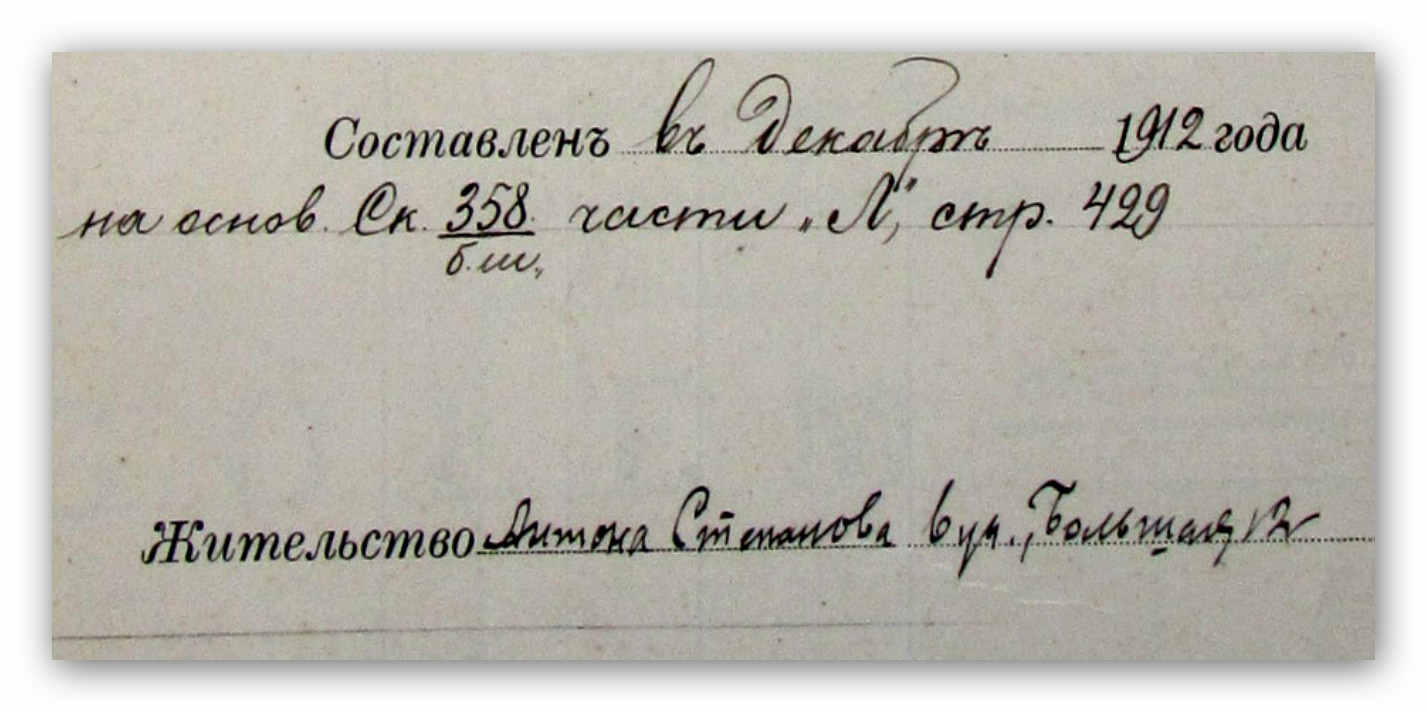 Составленъ въ Декабрѣ 1912 года
на основ. Ск. 358 части „Л", стр. 429
б.ш.
Жительство Антона Степанова Вул., Большая, 12